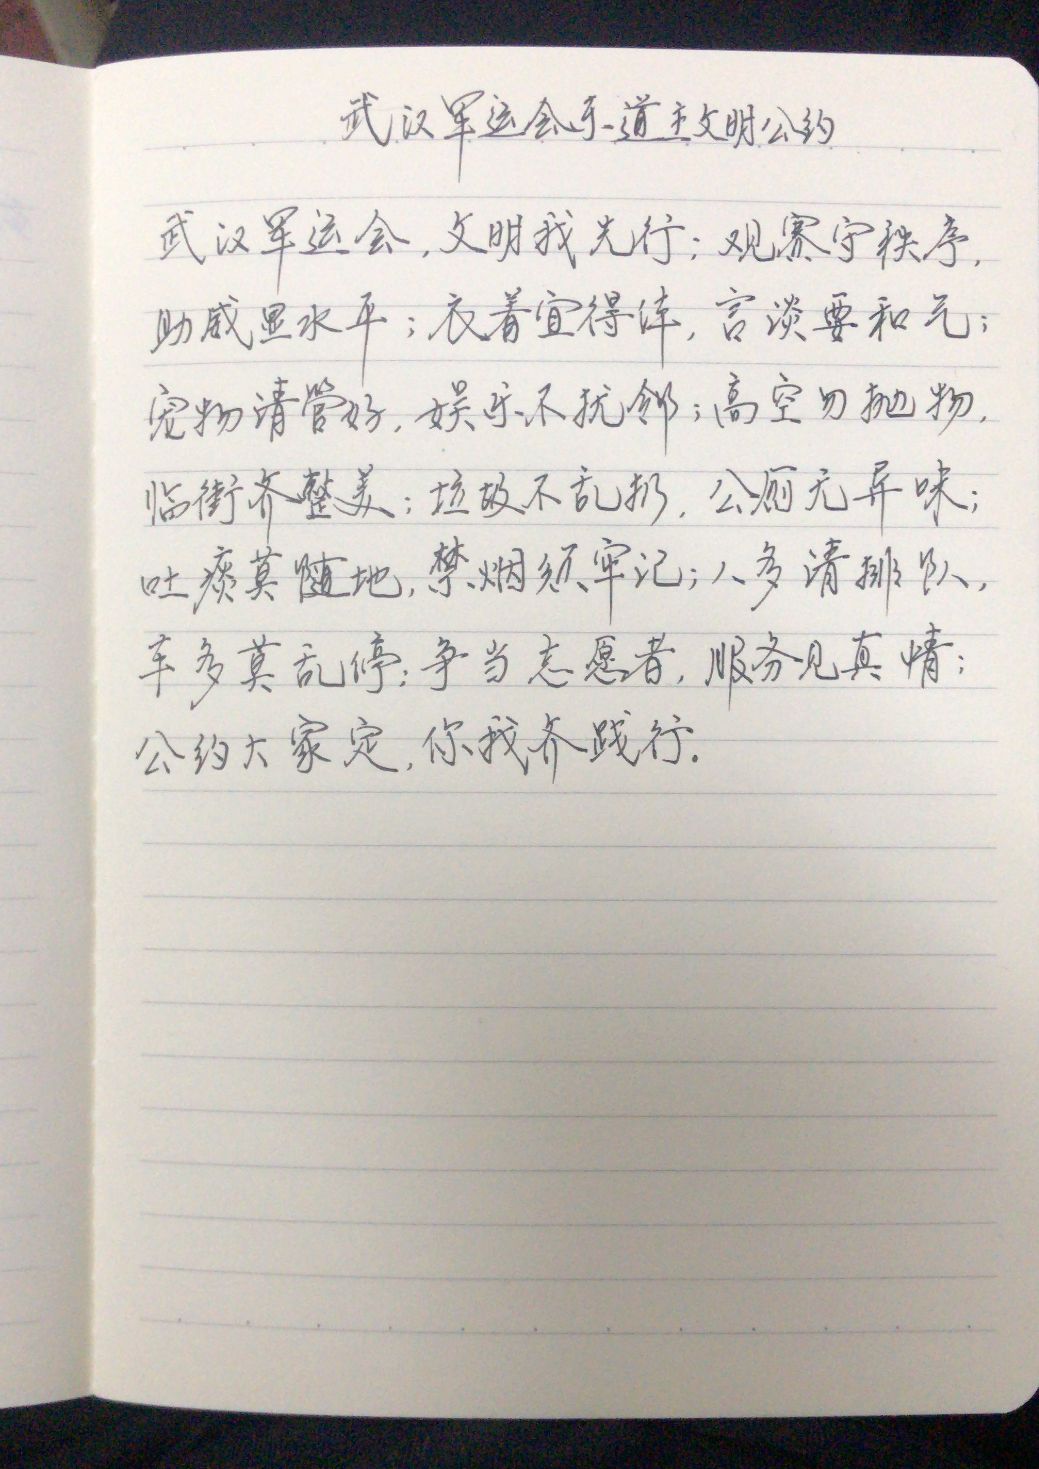 武汉军运会东道主文明公约
武汉军运会,文明我先行;观赛守秩序,
助威显水平;衣着宜得体,言谈要和气;
宠物请管好,娱乐不扰邻;高空勿抛物,
临街齐整美;垃圾不乱扔,公厕无异味;
吐痰莫随地,禁烟须牢记;人多请排队,
车多莫乱停;争当志愿者,服务见真情;
公约大家定,你我齐践行.